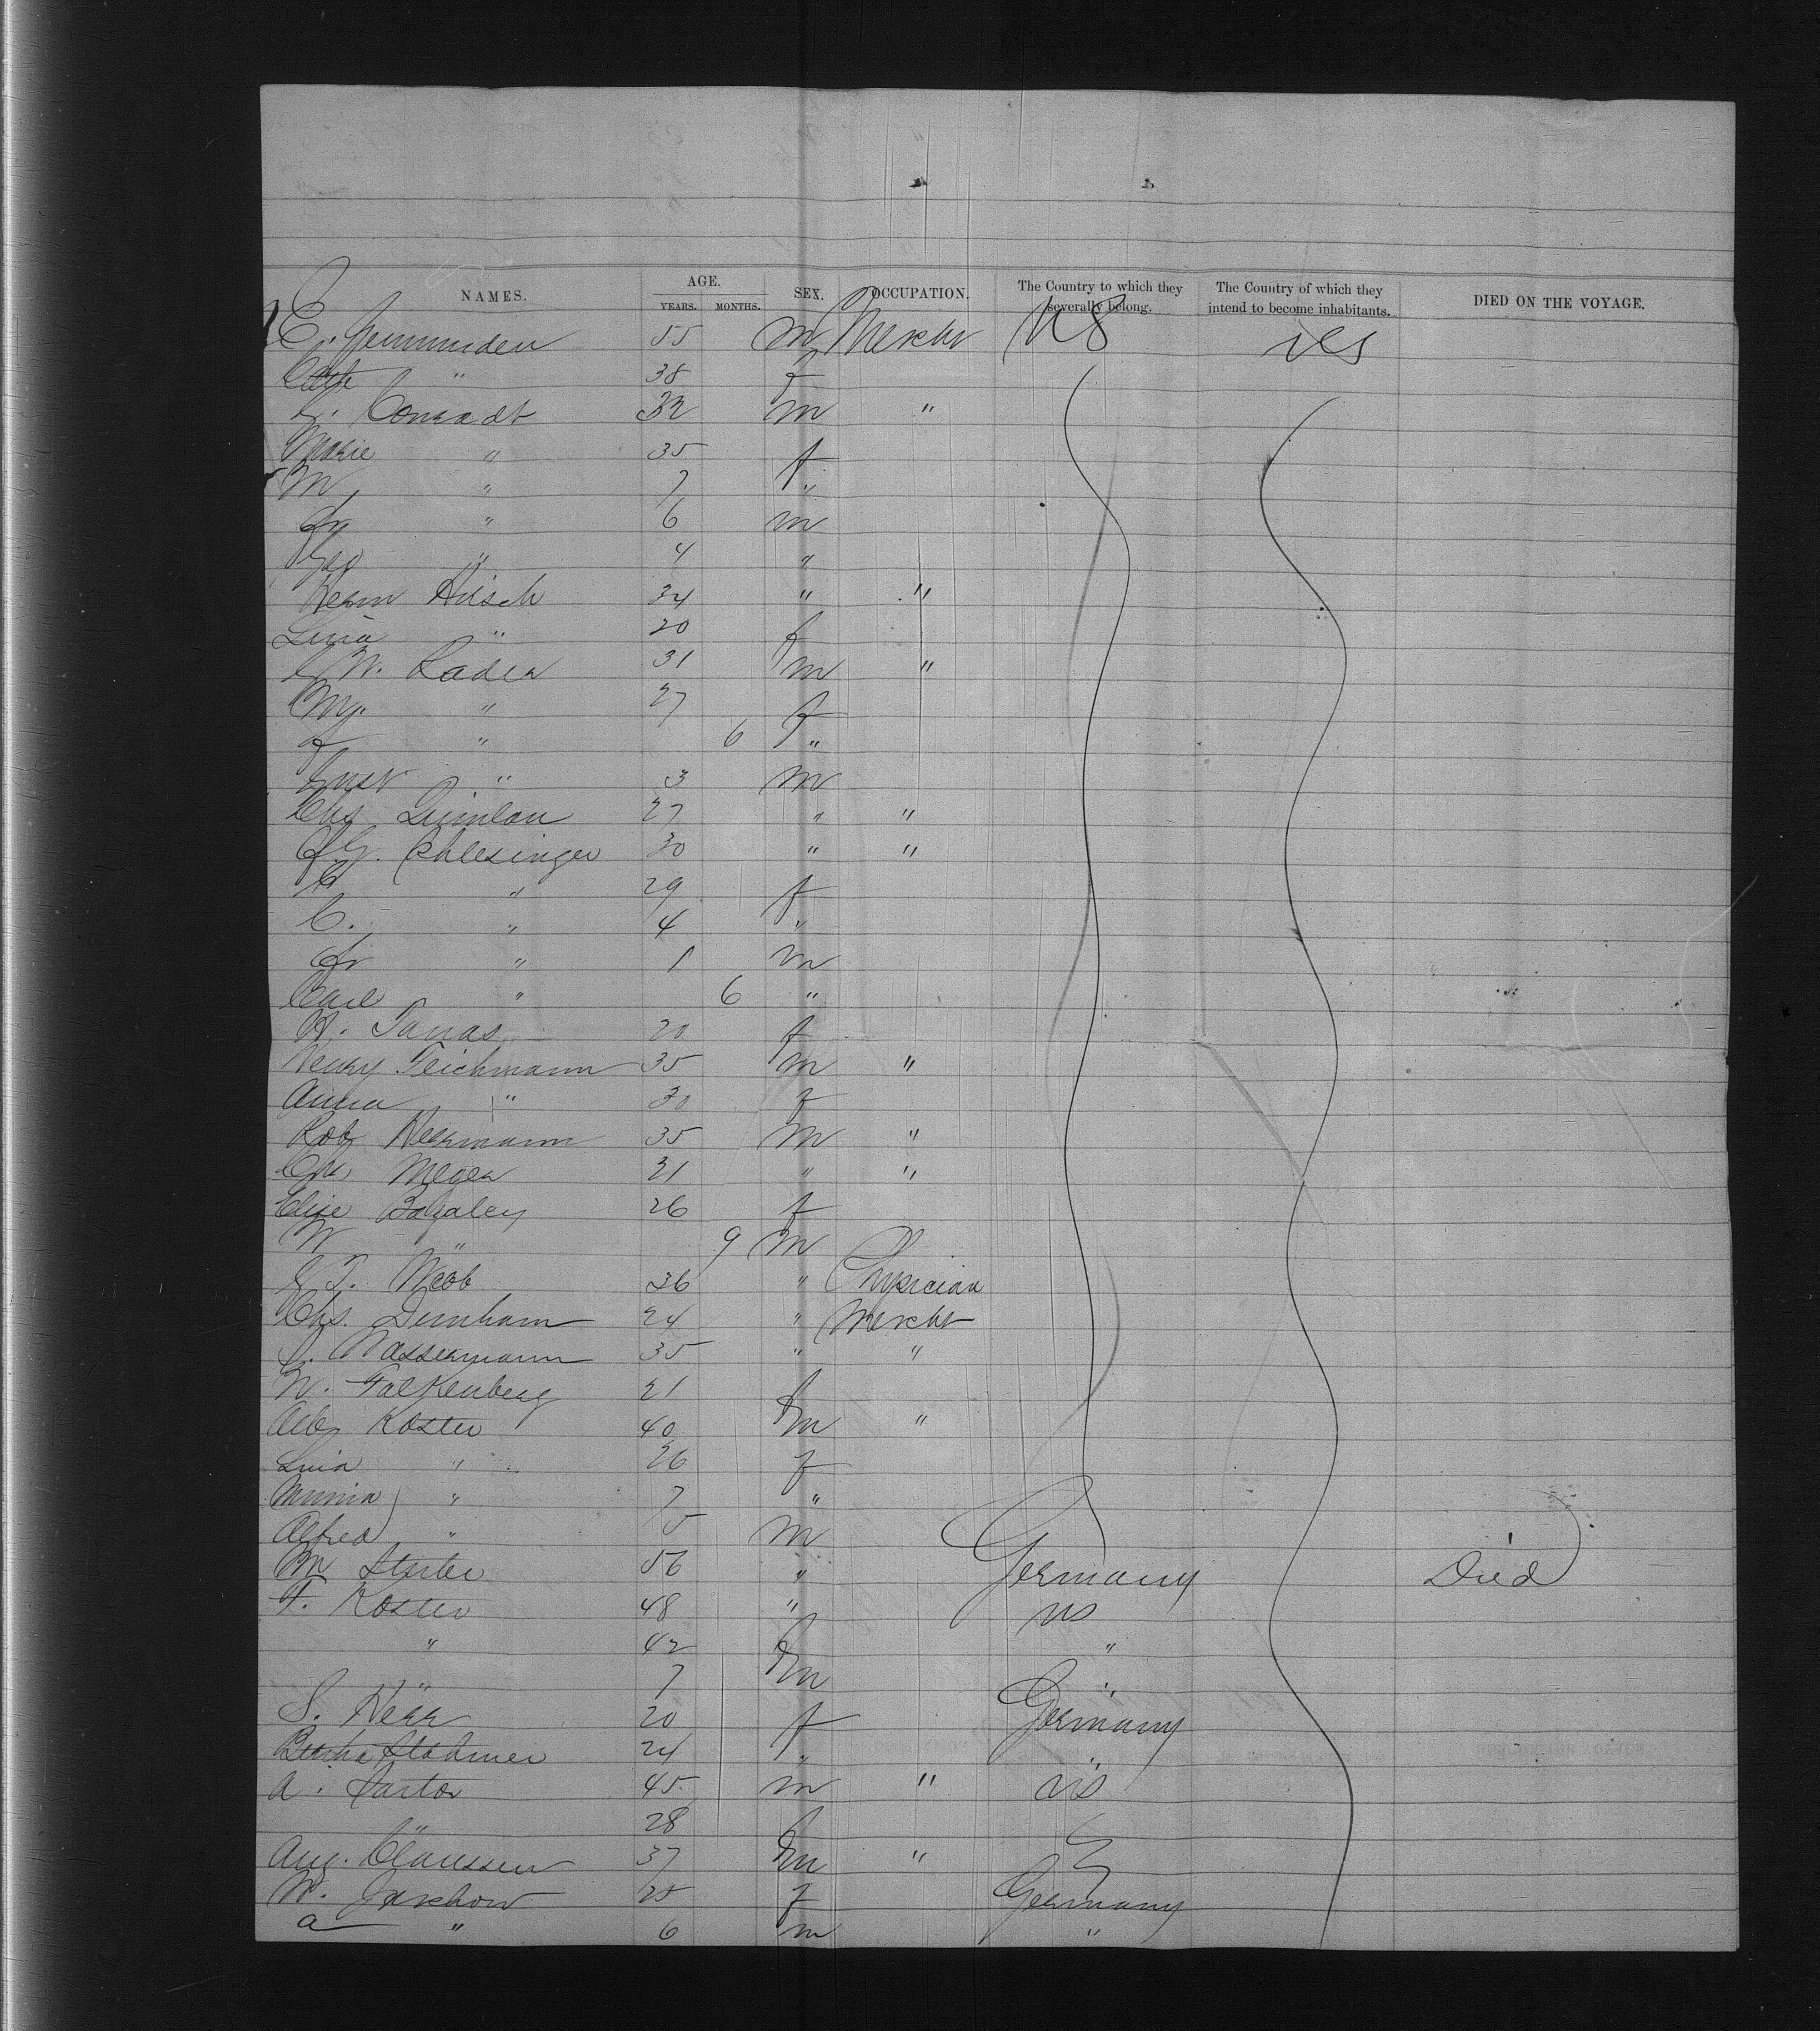 NAMES. AGE. YEARS. MONTHS. SEX. OCCUPATION. The Country to which they severally belong. The Country of which they intend to become inhabitants. DIED ON THE VOYAGE.
E. Gemmunden 55 m Mercht US US
Cath " 38 f
Conradt 32 m "
Marie " 35 f
M " 7 "
Fr " 6 m
Geo " 4 "
Herm Hirsch 34 " "
Lina " 20 f
W. Rader 31 m "
" 27 f
" 6 "
Ernst " 3 m
Chs Quinlan 27 " "
G. Schlesinger 30 " "
" 29 f
C. " 4 "
Fr " 1 m
Carl " 6 "
H. 20 f
Henry Teichmann 35 m "
Anna " 30 f
Rob Herrmann 35 m "
Chs Meyer 21 " "
Elise Bagaley 26 f
W " 9 m
T. 36 " Physician
Chs. Durnham 24 " Mercht
Wassermann 35 " "
W. Falkenberg 21 f
Alb Koster 40 m "
Lina " 26 f
Minnia " 7 "
Alfred " 5 m
M 56 " Germany Died
F. Koster 48 " US
" 42 f "
" 7 m "
S. Herr 20 f Germany
Bertha 24 "
A. Sartor 45 m " US
" 28 f
Aug. Claussen 37 m "
W. Jaschow 25 f Germany
a " 6 m "